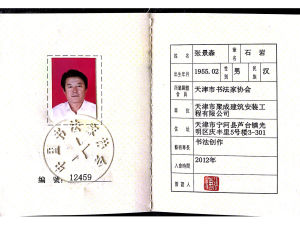 编 号: 12459
姓名 张景森 笔名 石岩
出生年月 1955.02 性别 男 民族 汉
天津市书法家协会
天津市聚成建筑安装工
程有限公司
住址 天津市宁河县芦台镇光
明区庆丰里5号楼3-301
书法创作
入会时间 2012年